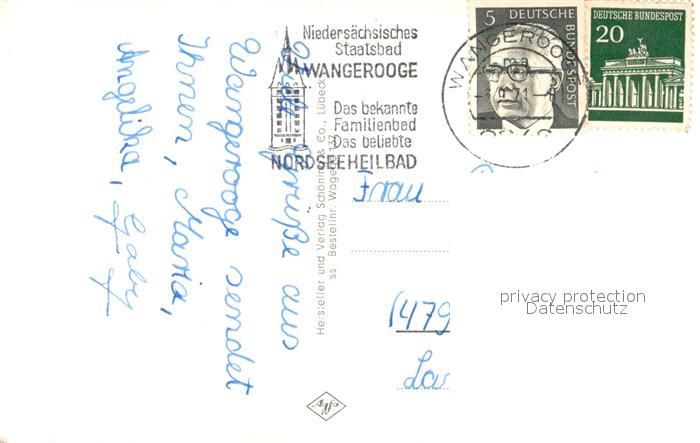 Niedersächsisches
Staatsbad
WANGEROOGE
Das bekannte
Familienbad
Das beliebte
NORDSEEHEILBAD
WANGEROOGE
5
DEUTSCHE
BUNDESPOST
DEUTSCHE BUNDESPOST
20
Grüße aus
Wangerooge sendet
Ihnen, Maria,
Angelika, Gaby
Hersteller und Verlag Schöning & Co., Lübeck
ss Bestellnr. Wage 137
Frau
(479
privacy protection
Datenschutz
Agfa